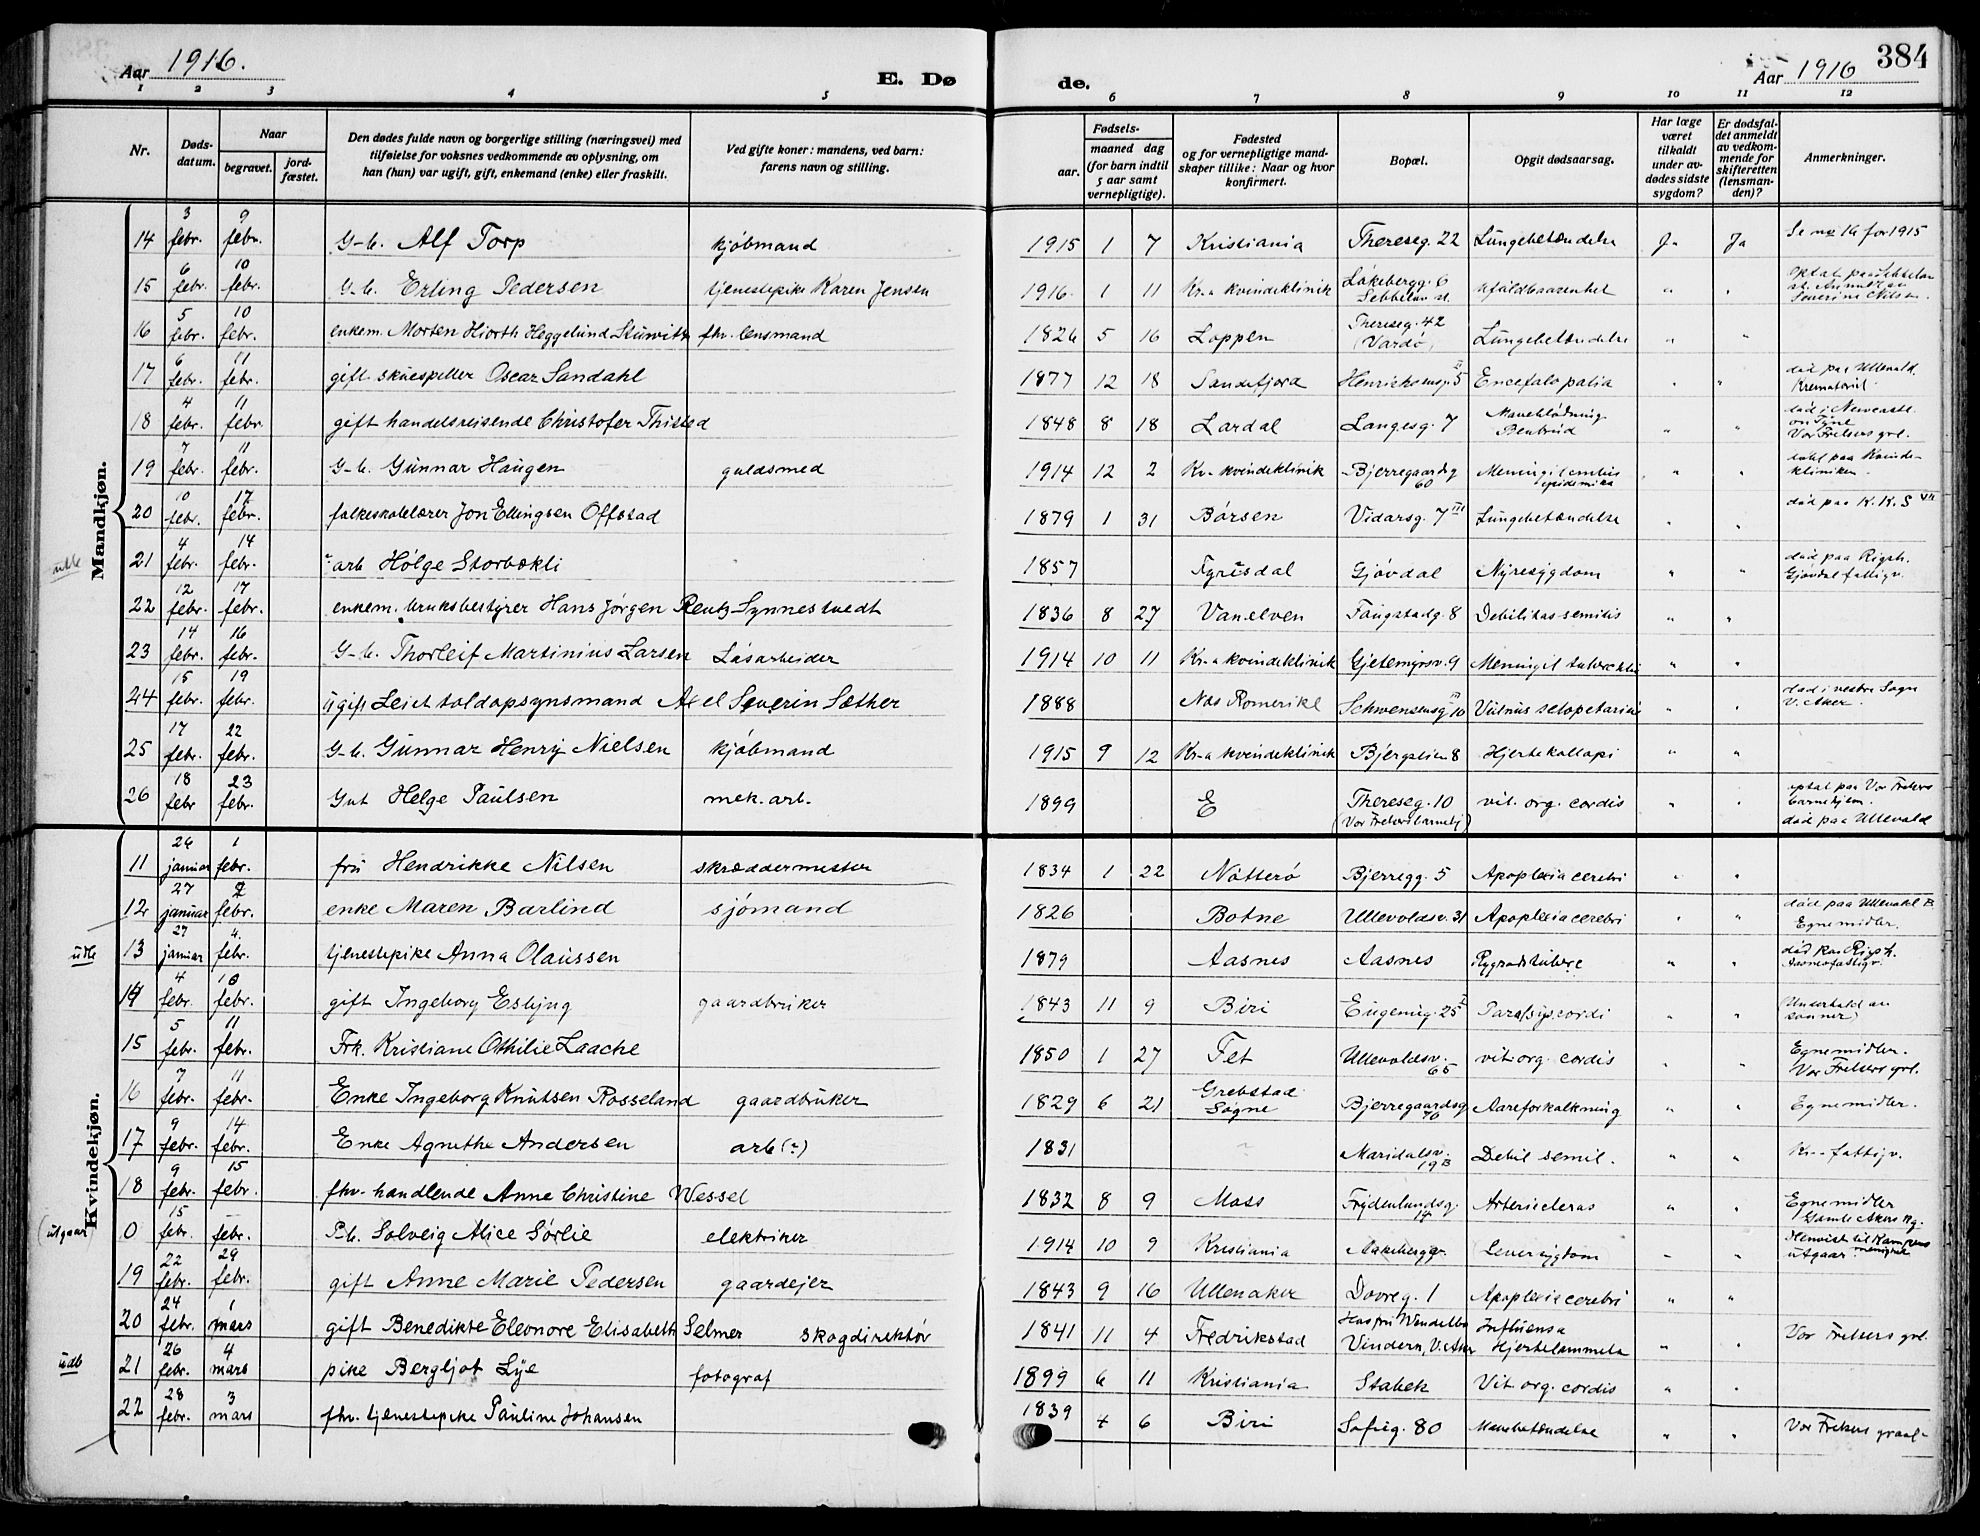 Aar 1916.
E. Døde.
Aar 1916
384
1 2 3 4 5 6 7 8 9 10 11 12
Nr.
Døds-datum.
Naar
begravet.
jord-fæstet.
Den dødes fulde navn og borgerlige stilling (næringsvei) med
tilføielse for voksnes vedkommende av oplysning, om
han (hun) var ugift, gift, enkemand (enke) eller fraskilt.
Ved gifte koner: mandens, ved barn:
farens navn og stilling.
Fødsels-
aar.
maaned dag
(for barn indtil
5 aar samt
vernepligtige).
Fødested
og for vernepligtige mand-
skaper tillike: Naar og hvor
konfirmert.
Bopæl.
Opgit dødsaarsag.
Har læge
været
tilkaldt
under av-
dødes sidste
sygdom?
Er dødsfal-
det anmeldt
av vedkom-
mende for
skifteretten
(lensman-
den)?
Anmerkninger.
Mandkjøn.
14 3 febr. 9 febr. G-b. Alf Torp kjøbmand 1915 1 7 Kristiania Thereseg. 22 Lungebetændelse Ja Ja Se no 16 for 1915
15 6 febr. 10 febr. G-b. Erling Pedersen tjenestepike Karen Jensen 1916 1 11 Kr-a kvindeklinik 6 " "
16 5 febr. 10 febr. enkem. Morten Hiorth Heggelund fhv. lensmand 1826 5 16 Loppen Thereseg. 42 (Vardø) Lungebetændelse " "
17 6 febr. 11 febr. gift skuespiller Oscar Sandahl 1877 12 18 Sandefjord 5 Encefalopatia " " død paa Ullevaal. Krematoriet.
18 4 febr. 11 febr. gift handelsreisende Christofer Thisted 1848 8 18 Lardal Langesg. 7 Maveblødning. " " død i Newcastle on Tyne Vor Frelsers grl.
19 7 febr. 11 febr. G-b. Gunnar Haugen guldsmed 1914 12 2 Kr-a kvindeklinik Bjerregaardsg 60 epidemika " " Kvinde-kliniken.
20 10 febr. 17 febr. folkeskolelærer Jon Ellingsen Offstad 1879 1 31 Børsen Vidarsg. 7 III Lungebetændelse " " død paa K. K. S VII
utb 21 4 febr. 14 febr. arb Hølge Storbækli 1857 Fyrisdal Gjøvdal Nyresygdom " " død paa Rigsh. Gjøvdal fattigv.
22 12 febr. 17 febr. enkem. bruksbestyrer Hans Jørgen Rentz Synnestvedt 1836 8 27 Vanelven Faugstadg. 8 Debilitas senilis " "
23 14 febr. 16 febr. G-b. Thorleif Martinius Larsen Låsarbeider 1914 10 11 Kr-a kvindeklinik Gjetemyrsv. 9 " "
24 15 febr. 19 febr. gift toldopsynsmand Axel Severin Sæther 1888 Nes Romerike Schwensensg 10 " " død i vestre V. Aker.
25 17 febr. 22 febr. G-b. Gunnar Henry Nielsen kjøbmand 1915 9 12 Kr-a kvindeklinik Bjergslien 8 " "
26 18 febr 23 febr. Gut Helge Paulsen mek. arb. 1899 E Thereseg. 10 (Vor Frelsers barnehj) vit. org. cordis " " optat paa Vor Frelsers barnehjem. død paa Ullevaal
Kvindekjøn.
11 26 januar 1 febr. fru Hendrikke Nilsen skræddermester 1834 1 22 Nøtterø Bjerregg. 5 Apoplexia cerebri " "
12 27 januar 2 febr. enke Maren Barlind sjømand 1826 Botne Ullevoldsv. 31 Apoplexia cerebri " " død paa Ullevaal Egne midler.
utb 13 27 januar 4. febr. tjenestepike Anna Olaussen 1879 Aasnes Aasnes " " død paa Rigsh. Aasnes fattigv.
14 4 febr. 10 febr. gift Ingeborg Esbjug gaardbruker 1843 11 9 Biri Eugeniig. 25 cordi " " (Underhold av sønner)
15 5 febr. 11 febr. Frk. Kristiane Othilie Laache 1850 1 27 Fet Ullevoldsv. 65 vit org. cordis " " Egne midler. Vor Frelsers grl.
16 7 febr. 11 febr. Enke Ingeborg Knutsen Rosseland gaardbruker 1829 6 21 Grebstad Søgne Bjerregaardsg 76 Aareforkalkning " " Egne midler.
17 9 febr. 14 febr. Enke Agnethe Andersen arb (?) 1831 ? Maridalsv. 19 B Debil senil. " " Kr-a fattigv.
18 9 febr. 15 febr. fhv. handlende Anne Christine Wessel 1832 8 9 Moss Frydenlundsg. 14 " " Egne midler Gamle Akers kg.
(utgaar) 0 15 febr. – febr. P.b. Solveig Alice Sørlie elektriker 1914 10 9 Kristiania Aakebergv. Leversygdom " " Henvist til Kampens menighet utgaar.
19 22 febr. 29 febr. gift Anne Marie Pedersen gaardejer 1843 9 16 Ullensaker Dovreg. 1 Apoplexia cerebri " "
20 24 febr. 1 mars gift Benedikte Eleonore Elisabeth Selmer skogdirektør 1841 11 4 Fredrikstad Hos fru Vindern, V. Aker Influensa Hjertelammelse " " Vor Frelsers grl.
utb 21 26 febr. 4 mars pike Bergljot Lye fotograf 1899 6 11 Kristiania Stabek Vit org. cordis " "
22 28 febr. 3 mars fhv. tjenestepike Pauline Johansen 1839 6 Biri Sofieg. 80 " " Vor Frelsers gravl-